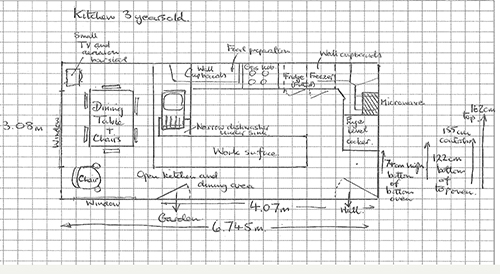 Kitchen 3 years old.
Small
TV and
Food preparation
Wall
Cupboards
Gas hob
Wall cupboards
Fridge
Freezer
Microwave
162cm
top
155cm
3.08m
Window
Dining
Table
+
Chairs
Narrow dishwasher
under sink
Eye
level
cooker
Work surface
122cm
bottom
of
top oven
77cm high
bottom
of bottom
oven
Chair
Open kitchen and
dining area
Window
Garden
4.07m
Hall
6.745m